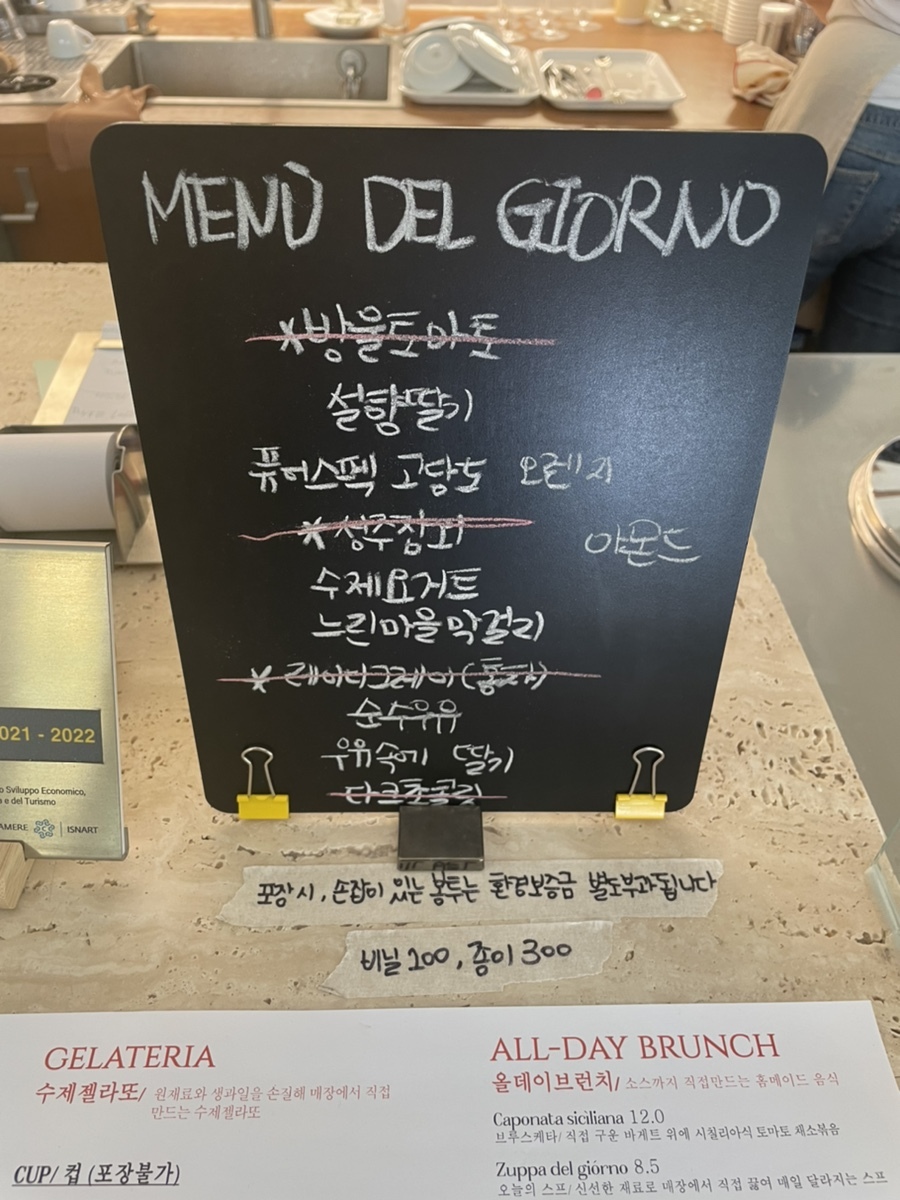 MENÙ DEL GIORNO
*방울토마토
설향딸기
퓨어스펙 고당도 오렌지
*성주참외
아몬드
수제요거트
느린마을막걸리
*레이디그레이(홍차)
순수우유
우유속에 딸기
다크초콜릿
포장시, 손잡이 있는 봉투는 환경보증금 별도부과됩니다
비닐 100, 종이 300
021 - 2022
o Sviluppo Economico,
a e del Turismo
AMERE ISNART
GELATERIA
수제젤라또/ 원재료와 생과일을 손질해 매장에서 직접
만드는 수제젤라또
CUP/ 컵 (포장불가)
ALL-DAY BRUNCH
올데이브런치/ 소스까지 직접만드는 홈메이드 음식
Caponata siciliana 12.0
브루스케타/ 직접 구운 바게트 위에 시칠리아식 토마토 채소볶음
Zuppa del giórno 8.5
오늘의 스프/ 신선한 재료로 매장에서 직접 끓여 매일 달라지는 스프